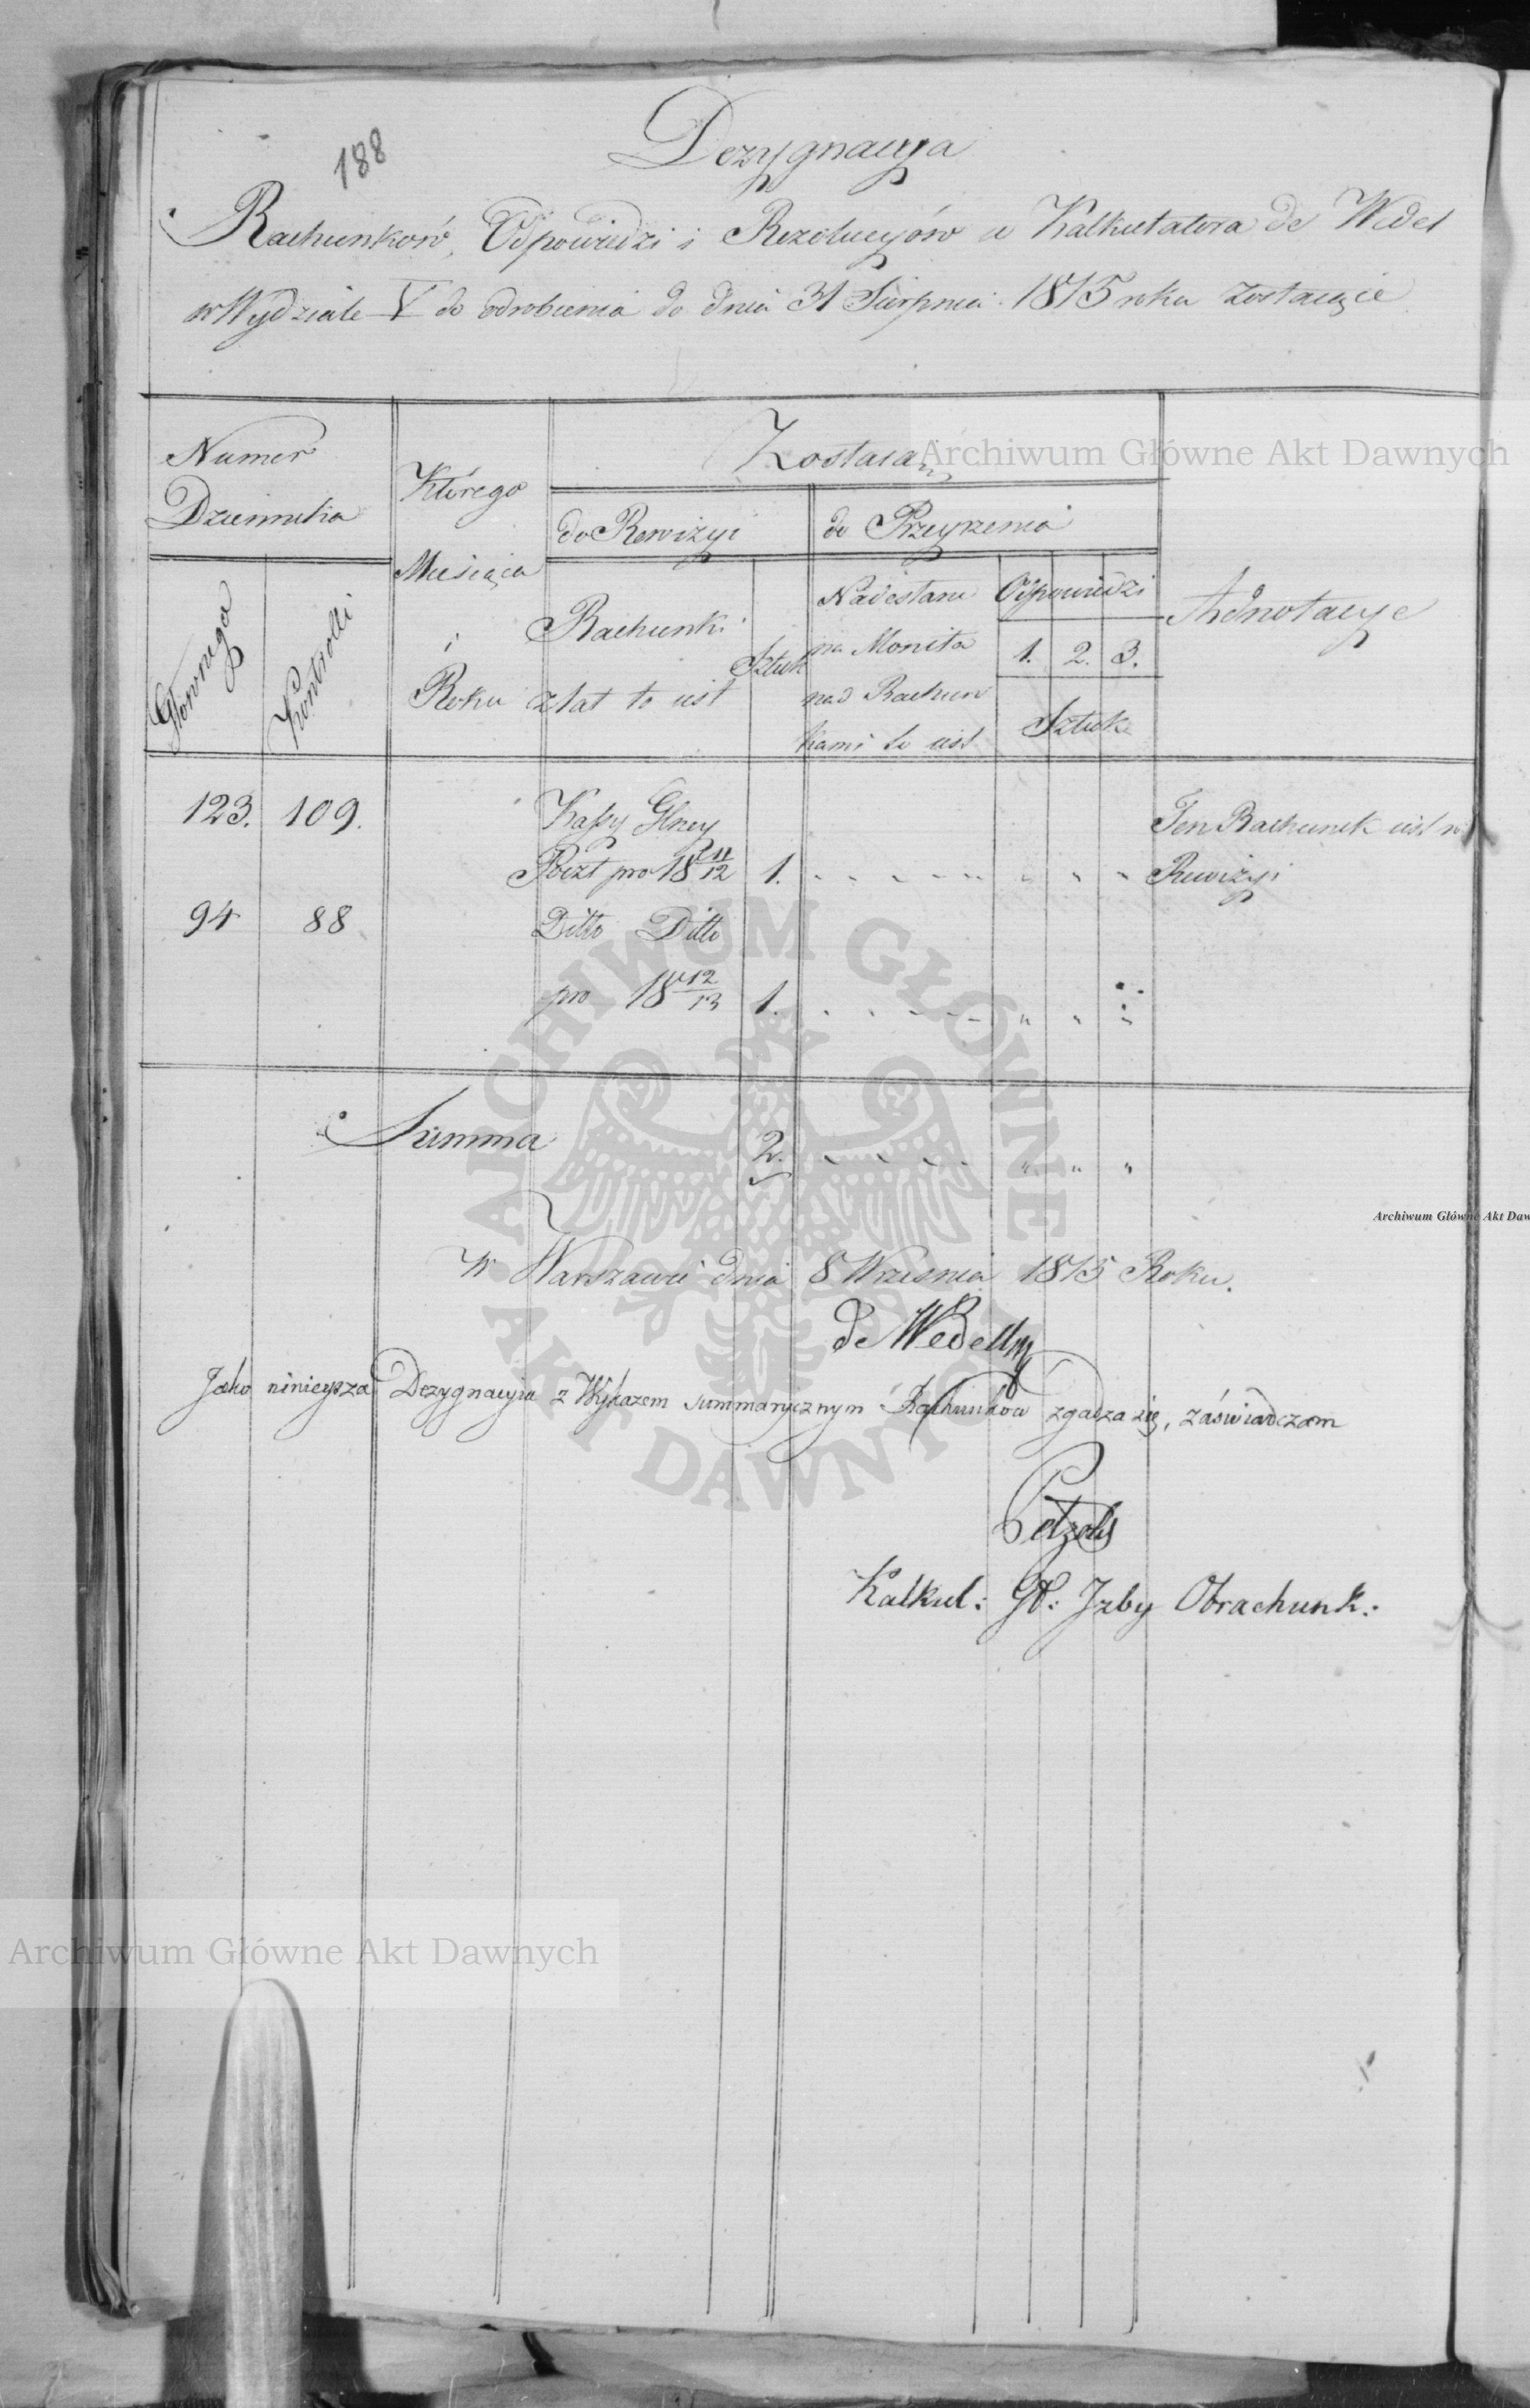 188
Dezygnacyja
Rachunków, Odpowiedzi i Rezolucyjów u Kalkulatora de Wedel
w Wydziale V do odrobienia do dnia 31 Sierpnia 1815 roku zostaiące
Numer
Dziennika
Głownego
Kontrolli
Którego
Miesiąca
i
Roku
Zostaią
do Rewizyi
do Przeyrzenia
Rachunki
z lat to iest
Sztuk
Nadesłane
na Monita
nad Rachun
kami to iest
Odpowiedzi
1. 2. 3.
Sztuk
Adnotacye
123. 109. Kassy Głney Ten Rachunek iest w
Poczt pro 18 11/12 1. Rewizyi
94 88 Ditto Ditto
pro 18 12/13 1.
Summa 2.
w Warszawie dnia 8 Wrzesnia 1815 Roku.
de Wedell
Jako ninieysza Dezygnacyia z Wykazem summarycznym Rachunków zgadza się, zaświadczam
Petzold
Kalkul: Gł: Izby Obrachunk:
Archiwum Główne Akt Dawnych
Archiwum Główne Akt Daw
ARCHIWUM GŁÓWNE AKT DAWNYCH
Archiwum Główne Akt Dawnych